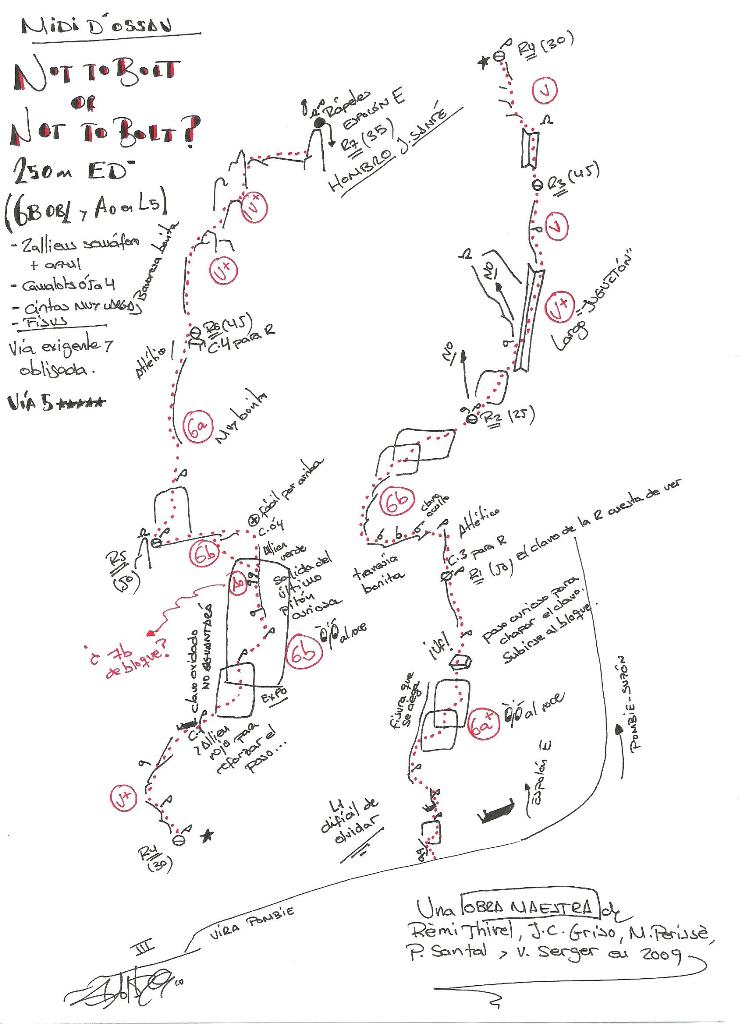 MIDI D'OSSAU
NOT TO BOLT
OR
NOT TO BOLT?
250m ED-
(6B OBL y A0 en L5)
- 2 alliens semáforo
+ azul
- Camalots 0,5 a 4
- Cintas MUY LARGAS
- FISUS
Vía exigente y
obligada.
VÍA 5 *****
Bavaresa bonita
Rápeles
ESPOLÓN E
R7 (35)
HOMBRO J. SANTÉ
V+
V+
R6 (45)
C.4 para R
Atlético
6a
Muy bonita
R5
(50)
6b
Fácil por arriba
C.04
Allien
verde
A0
Salida del
último
pitón
curiosa
¿ 7b
de bloque?
6b
al roce
EXPO
clavo oxidado
NO AGUANTARÁ
C.1
2 Allien
rojo para
reforzar el
paso...
V+
R4
(30)
R4 (30)
V
R3 (45)
V
NO
V+
Largo "JUGUETÓN"
NO
R2 (25)
6b
clavo
oculto
travesía
bonita
Atlético
C.3 para R
R1 (50) el clavo de la R cuesta de ver
paso curioso para
chapar el clavo.
Subirse al bloque.
¡Uf!
Fisura que
se ciega
6a+
al roce
ESPOLÓN E
POMBIE-SUZÓN
L1
difícil de
olvidar
VIRA POMBIE
III
Una OBRA MAESTRA de
Rèmi Thivel, J.C. Griso, M. Perissè,
P. Santal y V. Serger en 2009